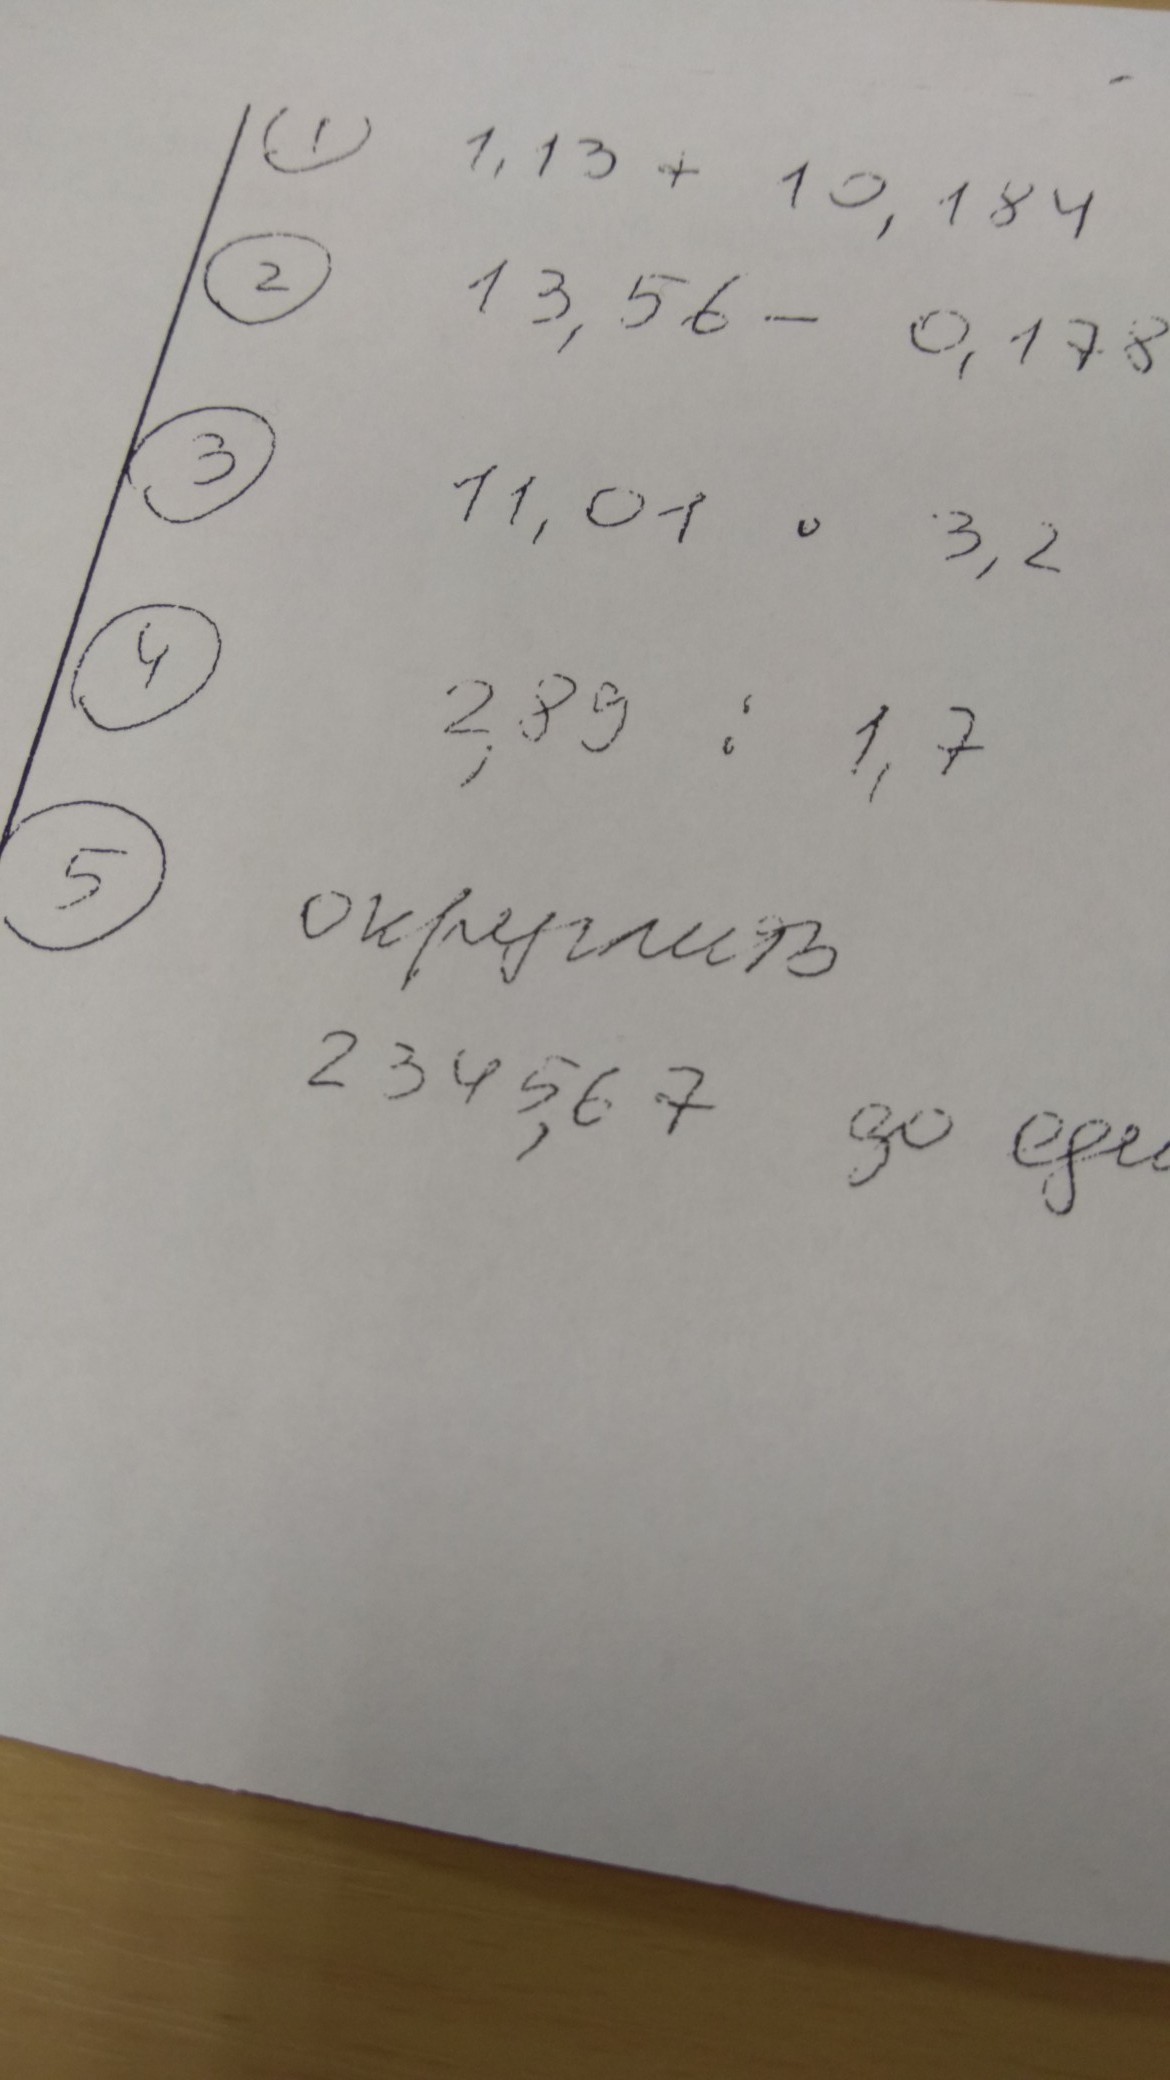 1 1,13 + 10,184
2 13,56 - 0,178
3 11,01 · 3,2
4 2,89 : 1,7
5 округлить
2345,67 до